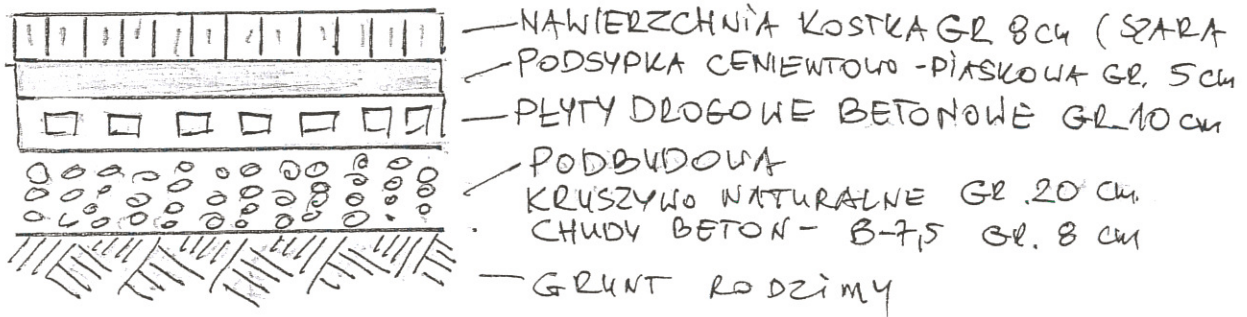 NAWIERZCHNIA KOSTKA GR 8cm (SZARA
PODSYPKA CEMENTOWO-PIASKOWA GR. 5cm
PŁYTY DROGOWE BETONOWE GR. 10 cm
PODBUDOWA
KRUSZYWO NATURALNE GR. 20 cm.
CHUDY BETON - B-7,5 GR. 8 cm
GRUNT RODZIMY